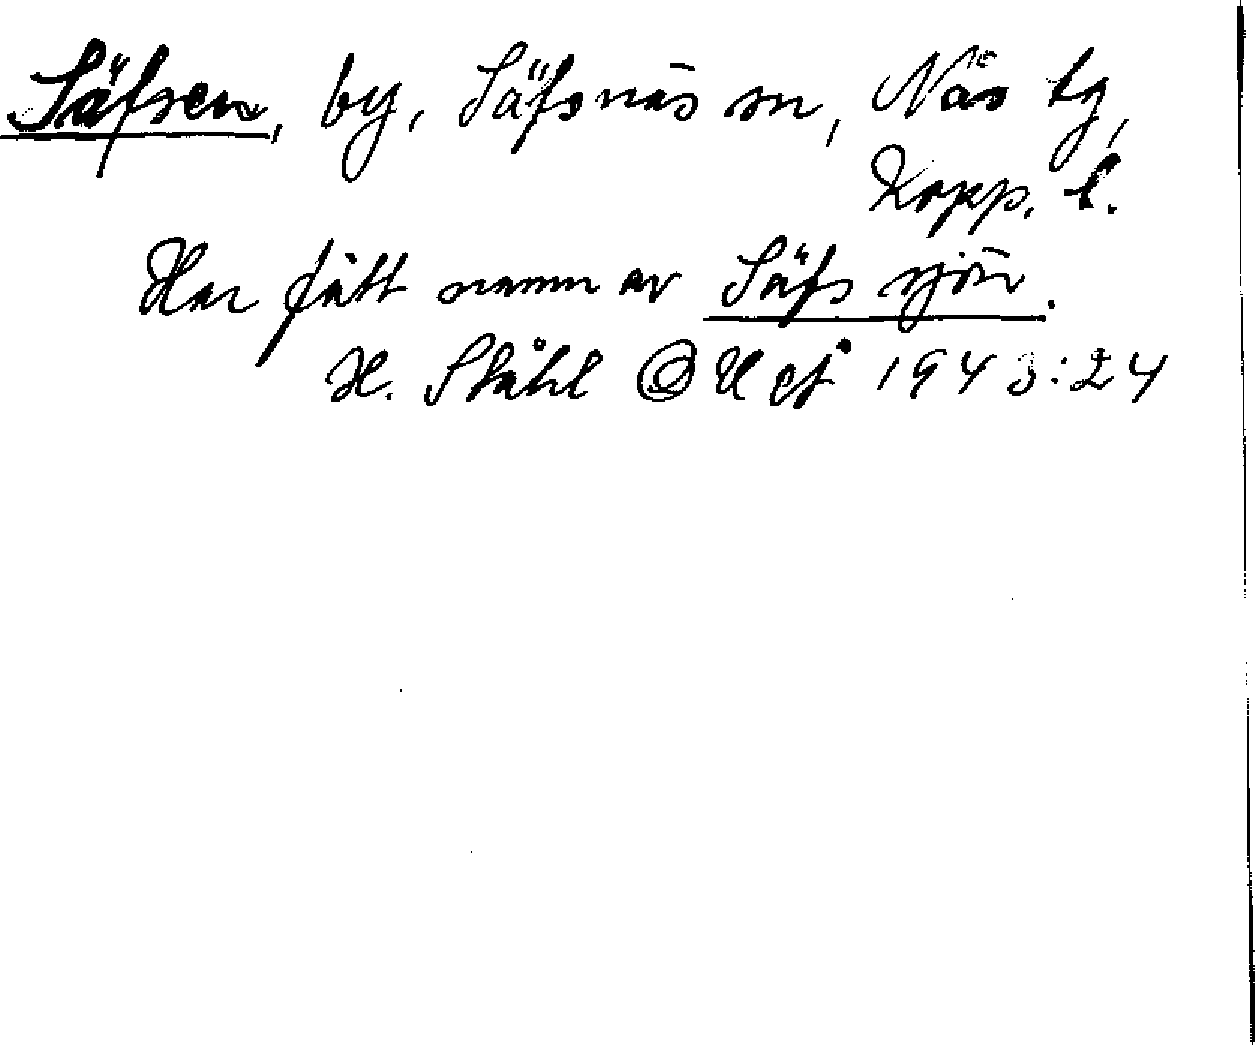 Säfsen, by, Säfsnäs sn, Näs tg,
Kopp. l.
Har fått namn av Säfssjön.
H. Ståhl @ 1943:24